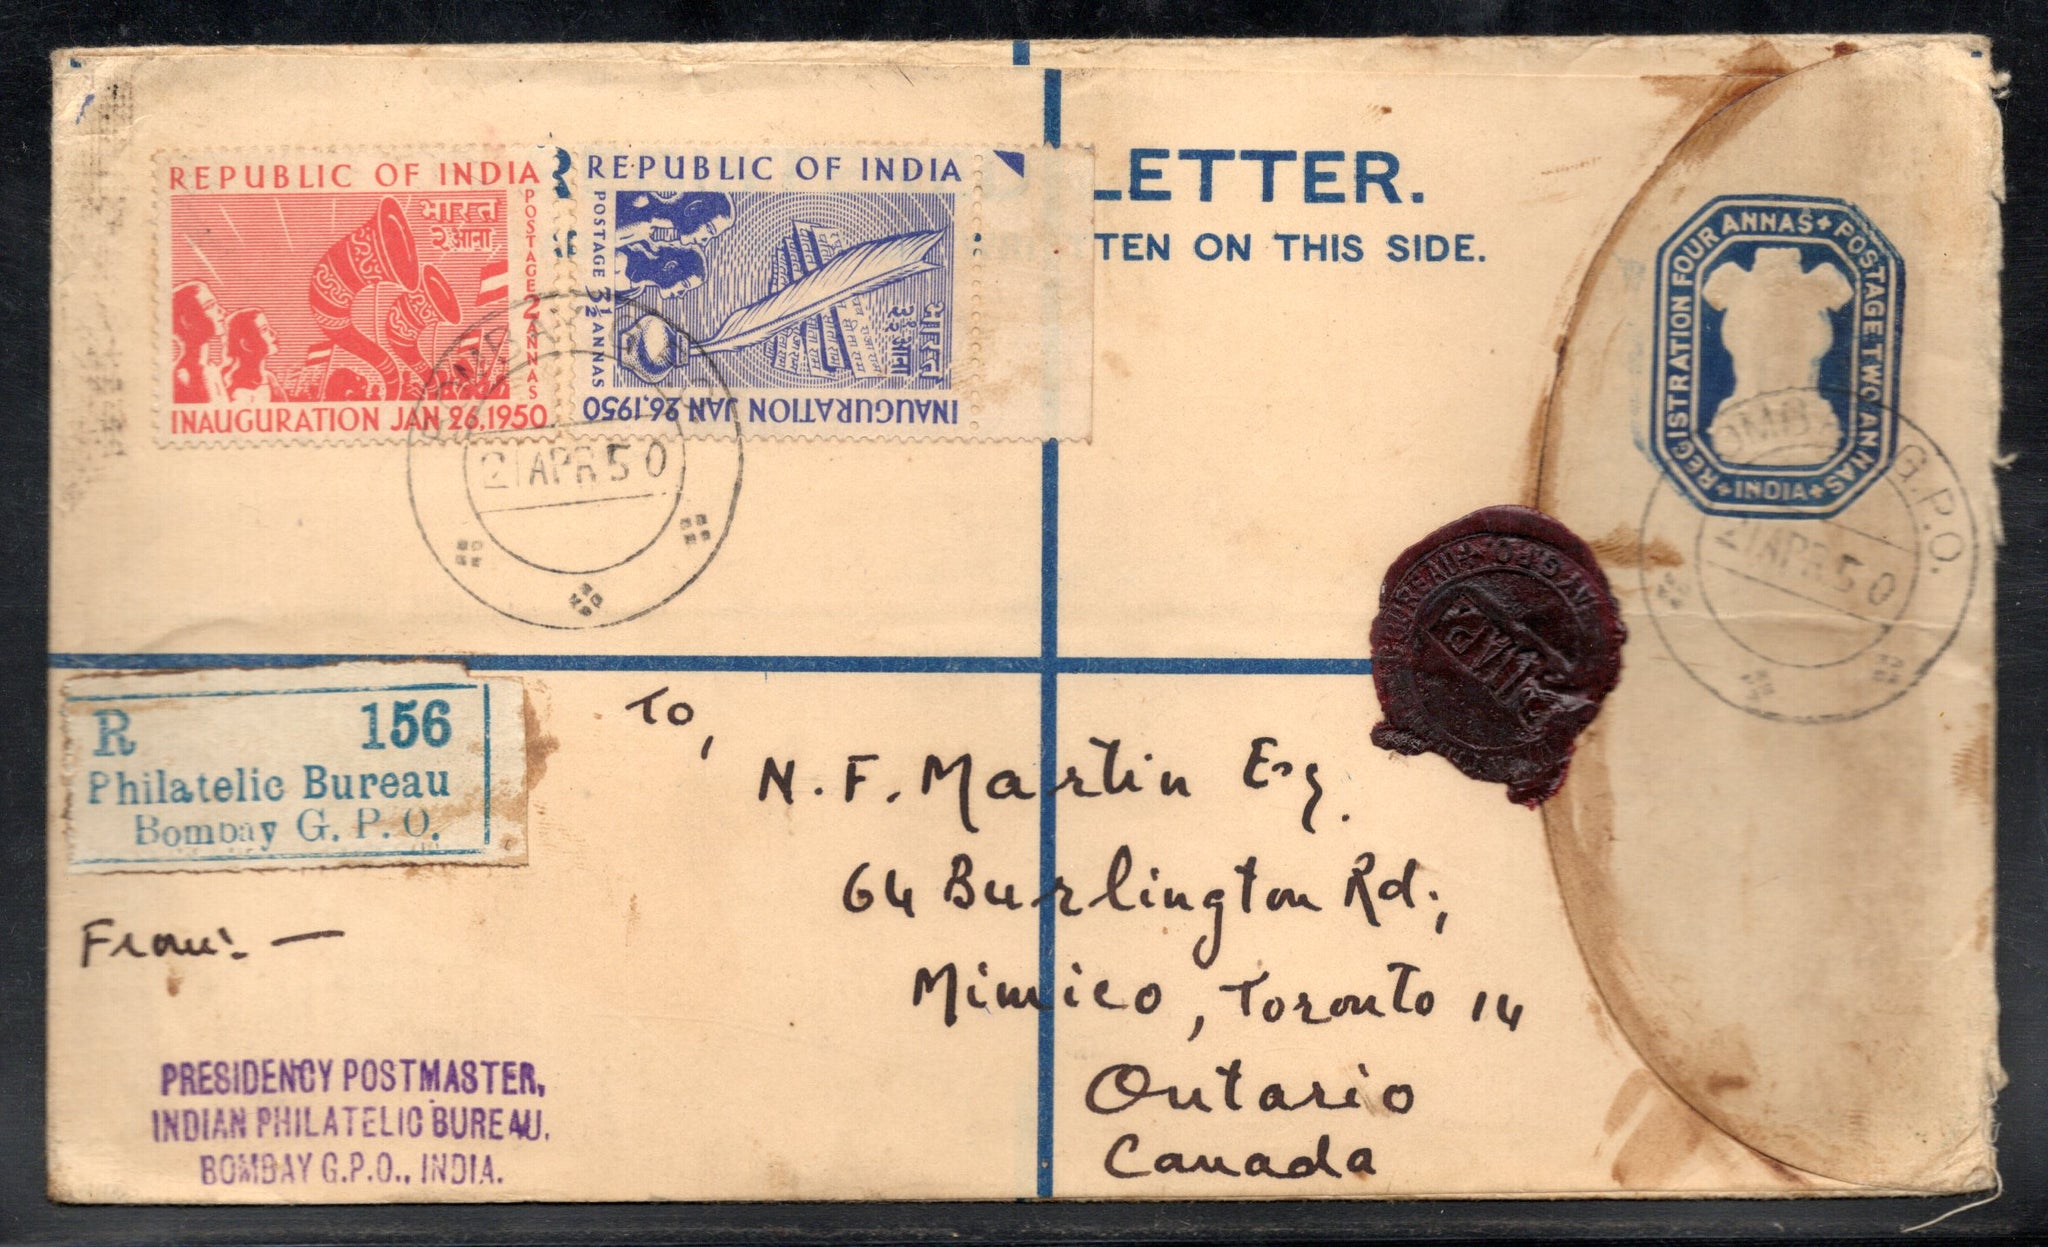 REPUBLIC OF INDIA
भारत
२ आना
POSTAGE 2 ANNAS
INAUGURATION JAN 26, 1950
REPUBLIC OF INDIA
POSTAGE 3½ ANNAS
भारत
३½ आना
INAUGURATION JAN 26, 1950
LETTER.
TEN ON THIS SIDE.
REGISTRATION FOUR ANNAS + POSTAGE TWO ANNAS
INDIA
21 APR 50
G.P.O.
21 APR 50
R 156
Philatelic Bureau
Bombay G. P. O.
To,
N. F. Martin Esq.
64 Burlington Rd.,
Mimico, Toronto 14
Ontario
Canada
From:-
PRESIDENCY POSTMASTER,
INDIAN PHILATELIC BUREAU.
BOMBAY G.P.O., INDIA.